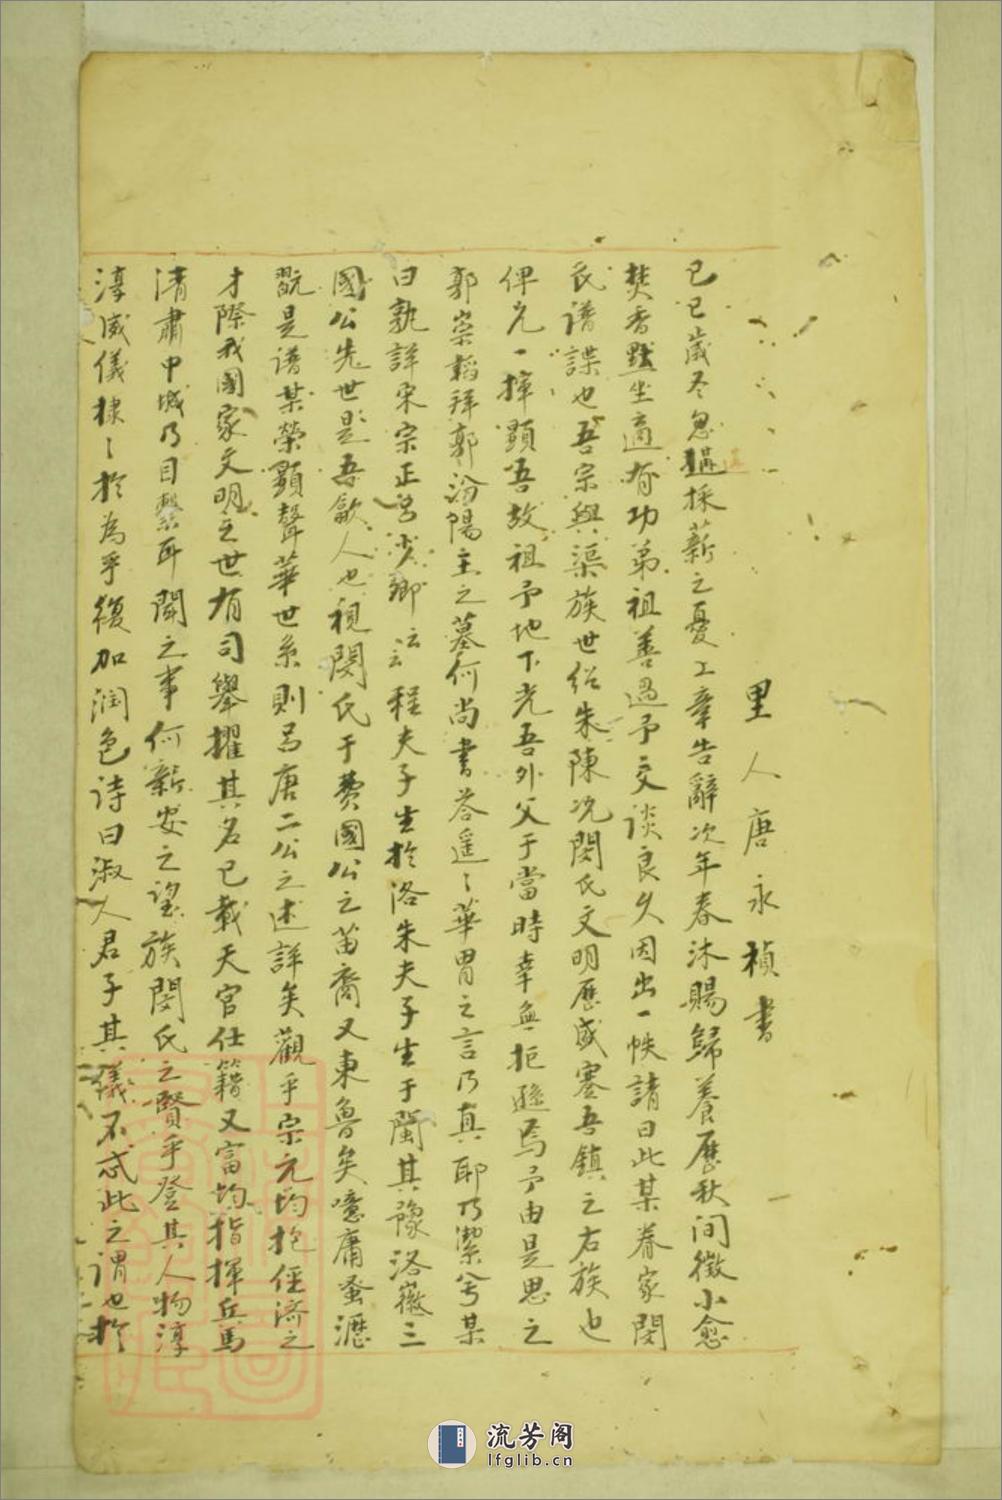 里人唐永禎書
己巳歲冬忽遘採薪之憂工辜告辭次年春沐賜歸養歷秋間徵小愈
焚香默坐適有功弟祖善過予交談良久因出一帙請曰此某眷家閔
氏譜諜也吾宗與渠族世紹朱陳况閔氏文明歷盛寔吾鎮之右族也
俾兄一揮顯吾故祖予地下光吾外父于當時幸無拒遜焉予由是思之
郭崇韜拜郭汾陽主之墓何尚書荅遥々華冑之言乃真耶乃潔兮某
曰孰詳宋宗正寺少卿云云程夫子生於洛朱夫子生于閩其豫洛徽三
國公先世是吾歙人也視閔氏于費國公之苗裔又東魯矣噫庸蚤瀝
翫是譜某榮顯聲華世系則馬唐二公之述詳矣觀乎宗元均抱經濟之
才際我國家文明之世有司舉擢其名已載天官仕籍又富均指揮兵馬
清肅中城乃目繫耳聞之事何新安之望族閔氏之賢乎登其人物淳
淳威儀棣々於為乎復加润色诗曰淑人君子其儀不忒此之謂也於
流芳阁
lfglib.cn